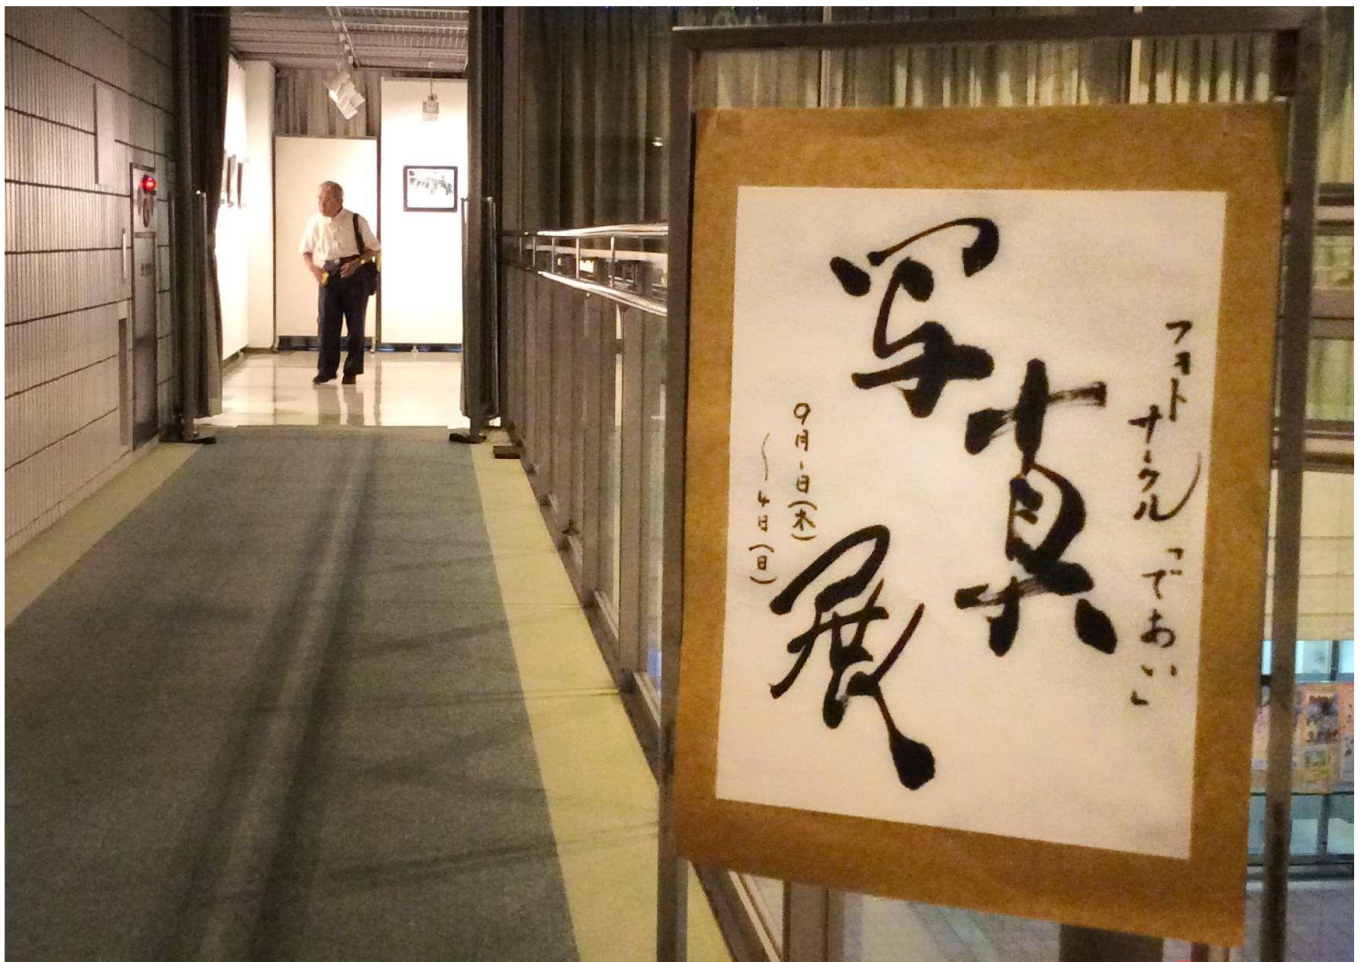 フォトサークル「であい」
写真展
9月1日(木)
〜4日(日)